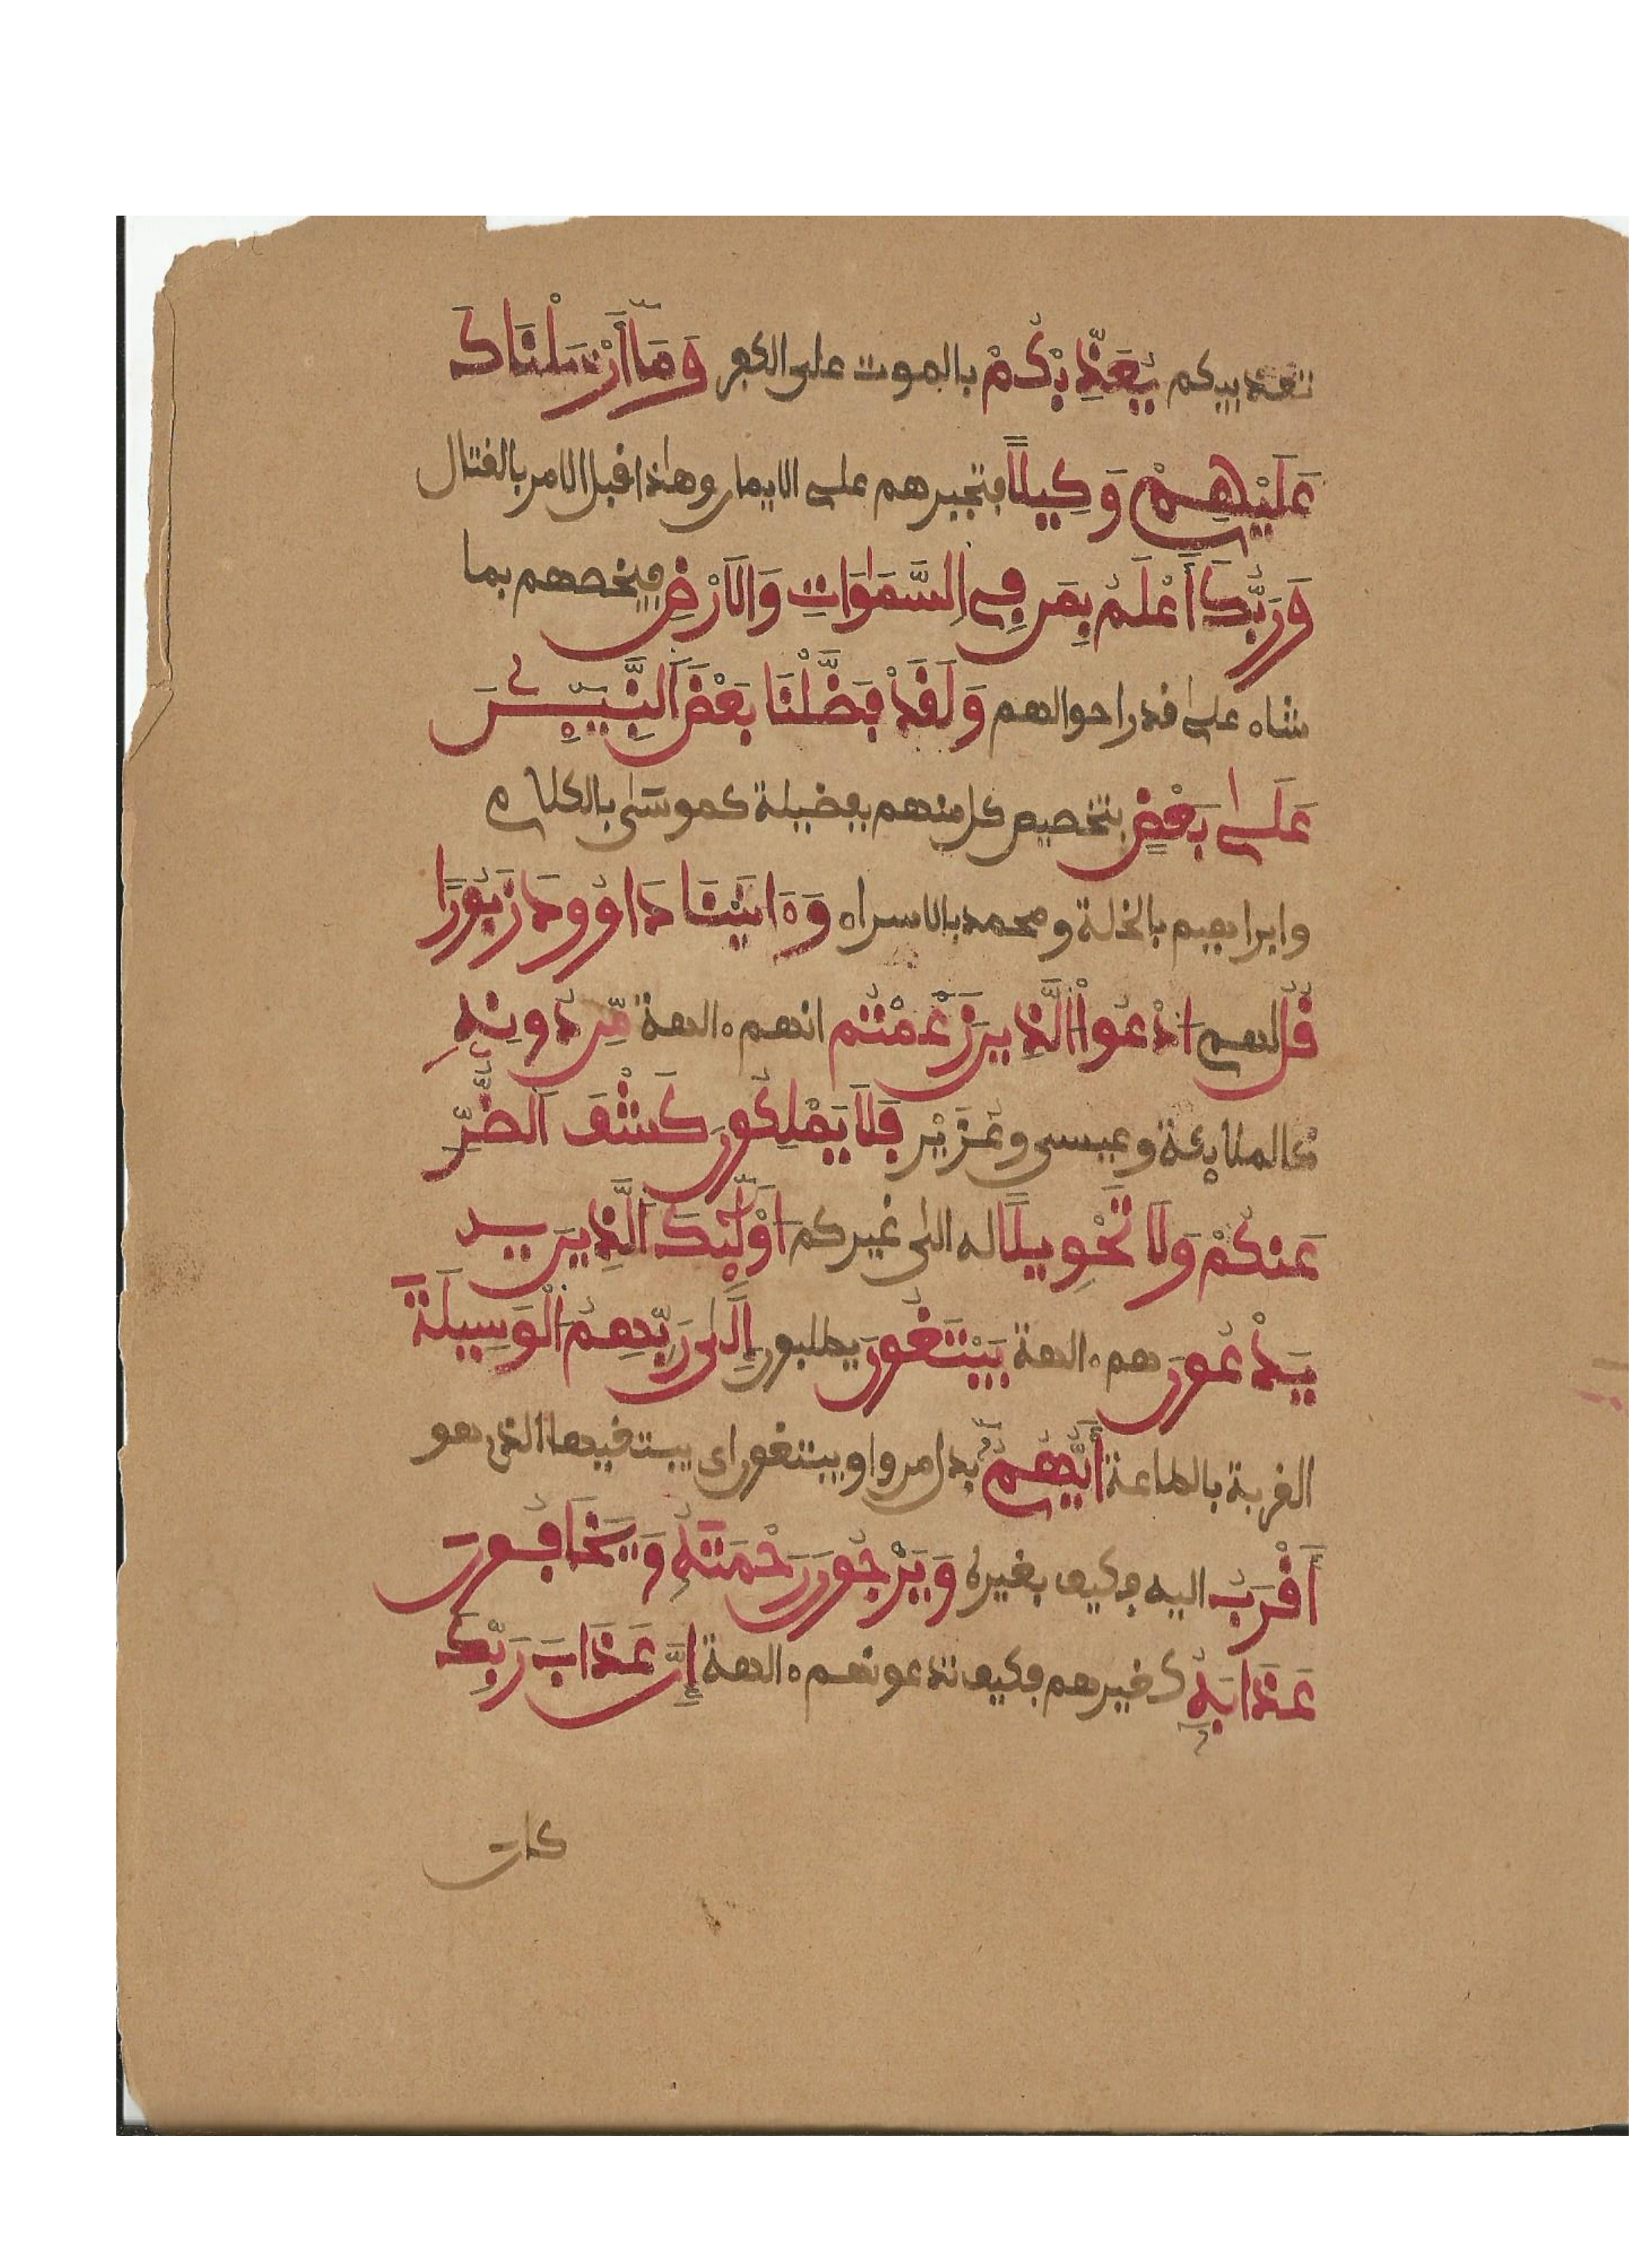 تعذيبكم يُعَذِّبْكُمْ بالموت على الكفر وَمَا أَرْسَلْنَاكَ
عَلَيْهِمْ وَكِيلًا فتجبرهم على الايمان وهاذا قبل الامر بالقتال
وَرَبُّكَ أَعْلَمُ بِمَن فِي السَّمَٰوَاتِ وَالَارْضِ فيخصهم بما
شاء على قدر احوالهم وَلَقَدْ فَضَّلْنَا بَعْضَ النَّبِيِٕينَ
عَلَىٰ بَعْضٍ بتخصيص كل منهم بفضيلة كموسى بالكلام
وابراهيم بالخلة ومحمد بالاسراء وَءَاتَيْنَا دَاوُودَ زَبُورًا
قُل لهم ادْعُوا الَّذِينَ زَعَمْتُم انهم ءالهة مِّن دُونِهِ
كالملائكة وعيسى وعُزَيْر فَلَا يَمْلِكُونَ كَشْفَ الضُّرِّ
عَنكُمْ وَلَا تَحْوِيلًا له الى غيركم أُوْلَٰٓئِكَ الَّذِينَ
يَدْعُونَ هم ءالهة يَبْتَغُونَ يطلبون إِلَىٰ رَبِّهِمُ الْوَسِيلَةَ
القربة بالطاعة أَيُّهُمُ بدل من واو يبتغون اى يبتغيها الذى هو
أَقْرَبُ اليه فكيف بغيره وَيَرْجُونَ رَحْمَتَهُ وَيَخَافُونَ
عَذَابَهُ كغيرهم فكيف تدعونهم ءالهة إِنَّ عَذَابَ رَبِّكَ
كان